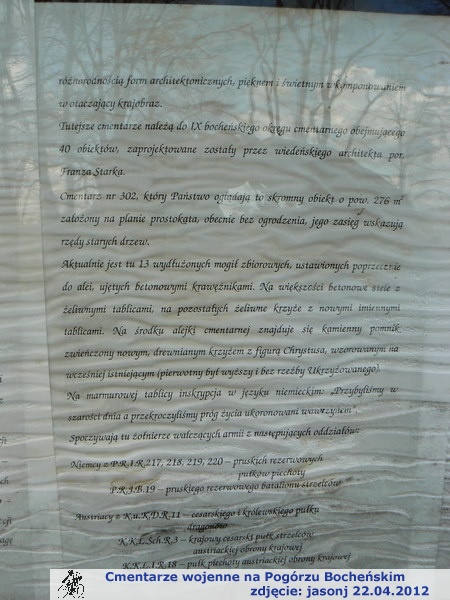 różnorodnością form architektonicznych, pięknem i świetnym wkomponowaniem
w otaczający krajobraz.
Tutejsze cmentarze należą do IX bocheńskiego okręgu cmentarnego obejmującego
40 obiektów, zaprojektowane zostały przez wiedeńskiego architekta por.
Franza Starka.
Cmentarz nr 302, który Państwo oglądają to skromny obiekt o pow. 276 m²
założony na planie prostokąta, obecnie bez ogrodzenia, jego zasięg wskazują
rzędy starych drzew.
Aktualnie jest tu 13 wydłużonych mogił zbiorowych, ustawionych poprzecznie
do alei, ujętych betonowymi krawężnikami. Na większości betonowe stele z
żeliwnymi tablicami, na pozostałych żeliwne krzyże z nowymi imiennymi
tablicami. Na środku alejki cmentarnej znajduje się kamienny pomnik
zwieńczony nowym, drewnianym krzyżem z figurą Chrystusa, wzorowanym na
wcześniej istniejącym (pierwotny był wyższy i bez rzeźby Ukrzyżowanego).
Na marmurowej tablicy inskrypcja w języku niemieckim: „Przybyliśmy w
szarości dnia a przekroczyliśmy próg życia ukoronowani wawrzynem".
Spoczywają tu żołnierze walczących armii z następujących oddziałów:
Niemcy z P.R.I.R.217, 218, 219, 220 – pruskich rezerwowych
pułków piechoty
P.R.J.B.19 – pruskiego rezerwowego batalionu strzelców
Austriacy z K.u.K.D.R.11 – cesarskiego i królewskiego pułku
dragonów
K.K.L.Sch.R.3 – krajowy cesarski pułk strzelców
austriackiej obrony krajowej
K.K.L.I.R.18 – pułk piechoty austriackiej obrony krajowej
Cmentarze wojenne na Pogórzu Bocheńskim
zdjęcie: jasonj 22.04.2012